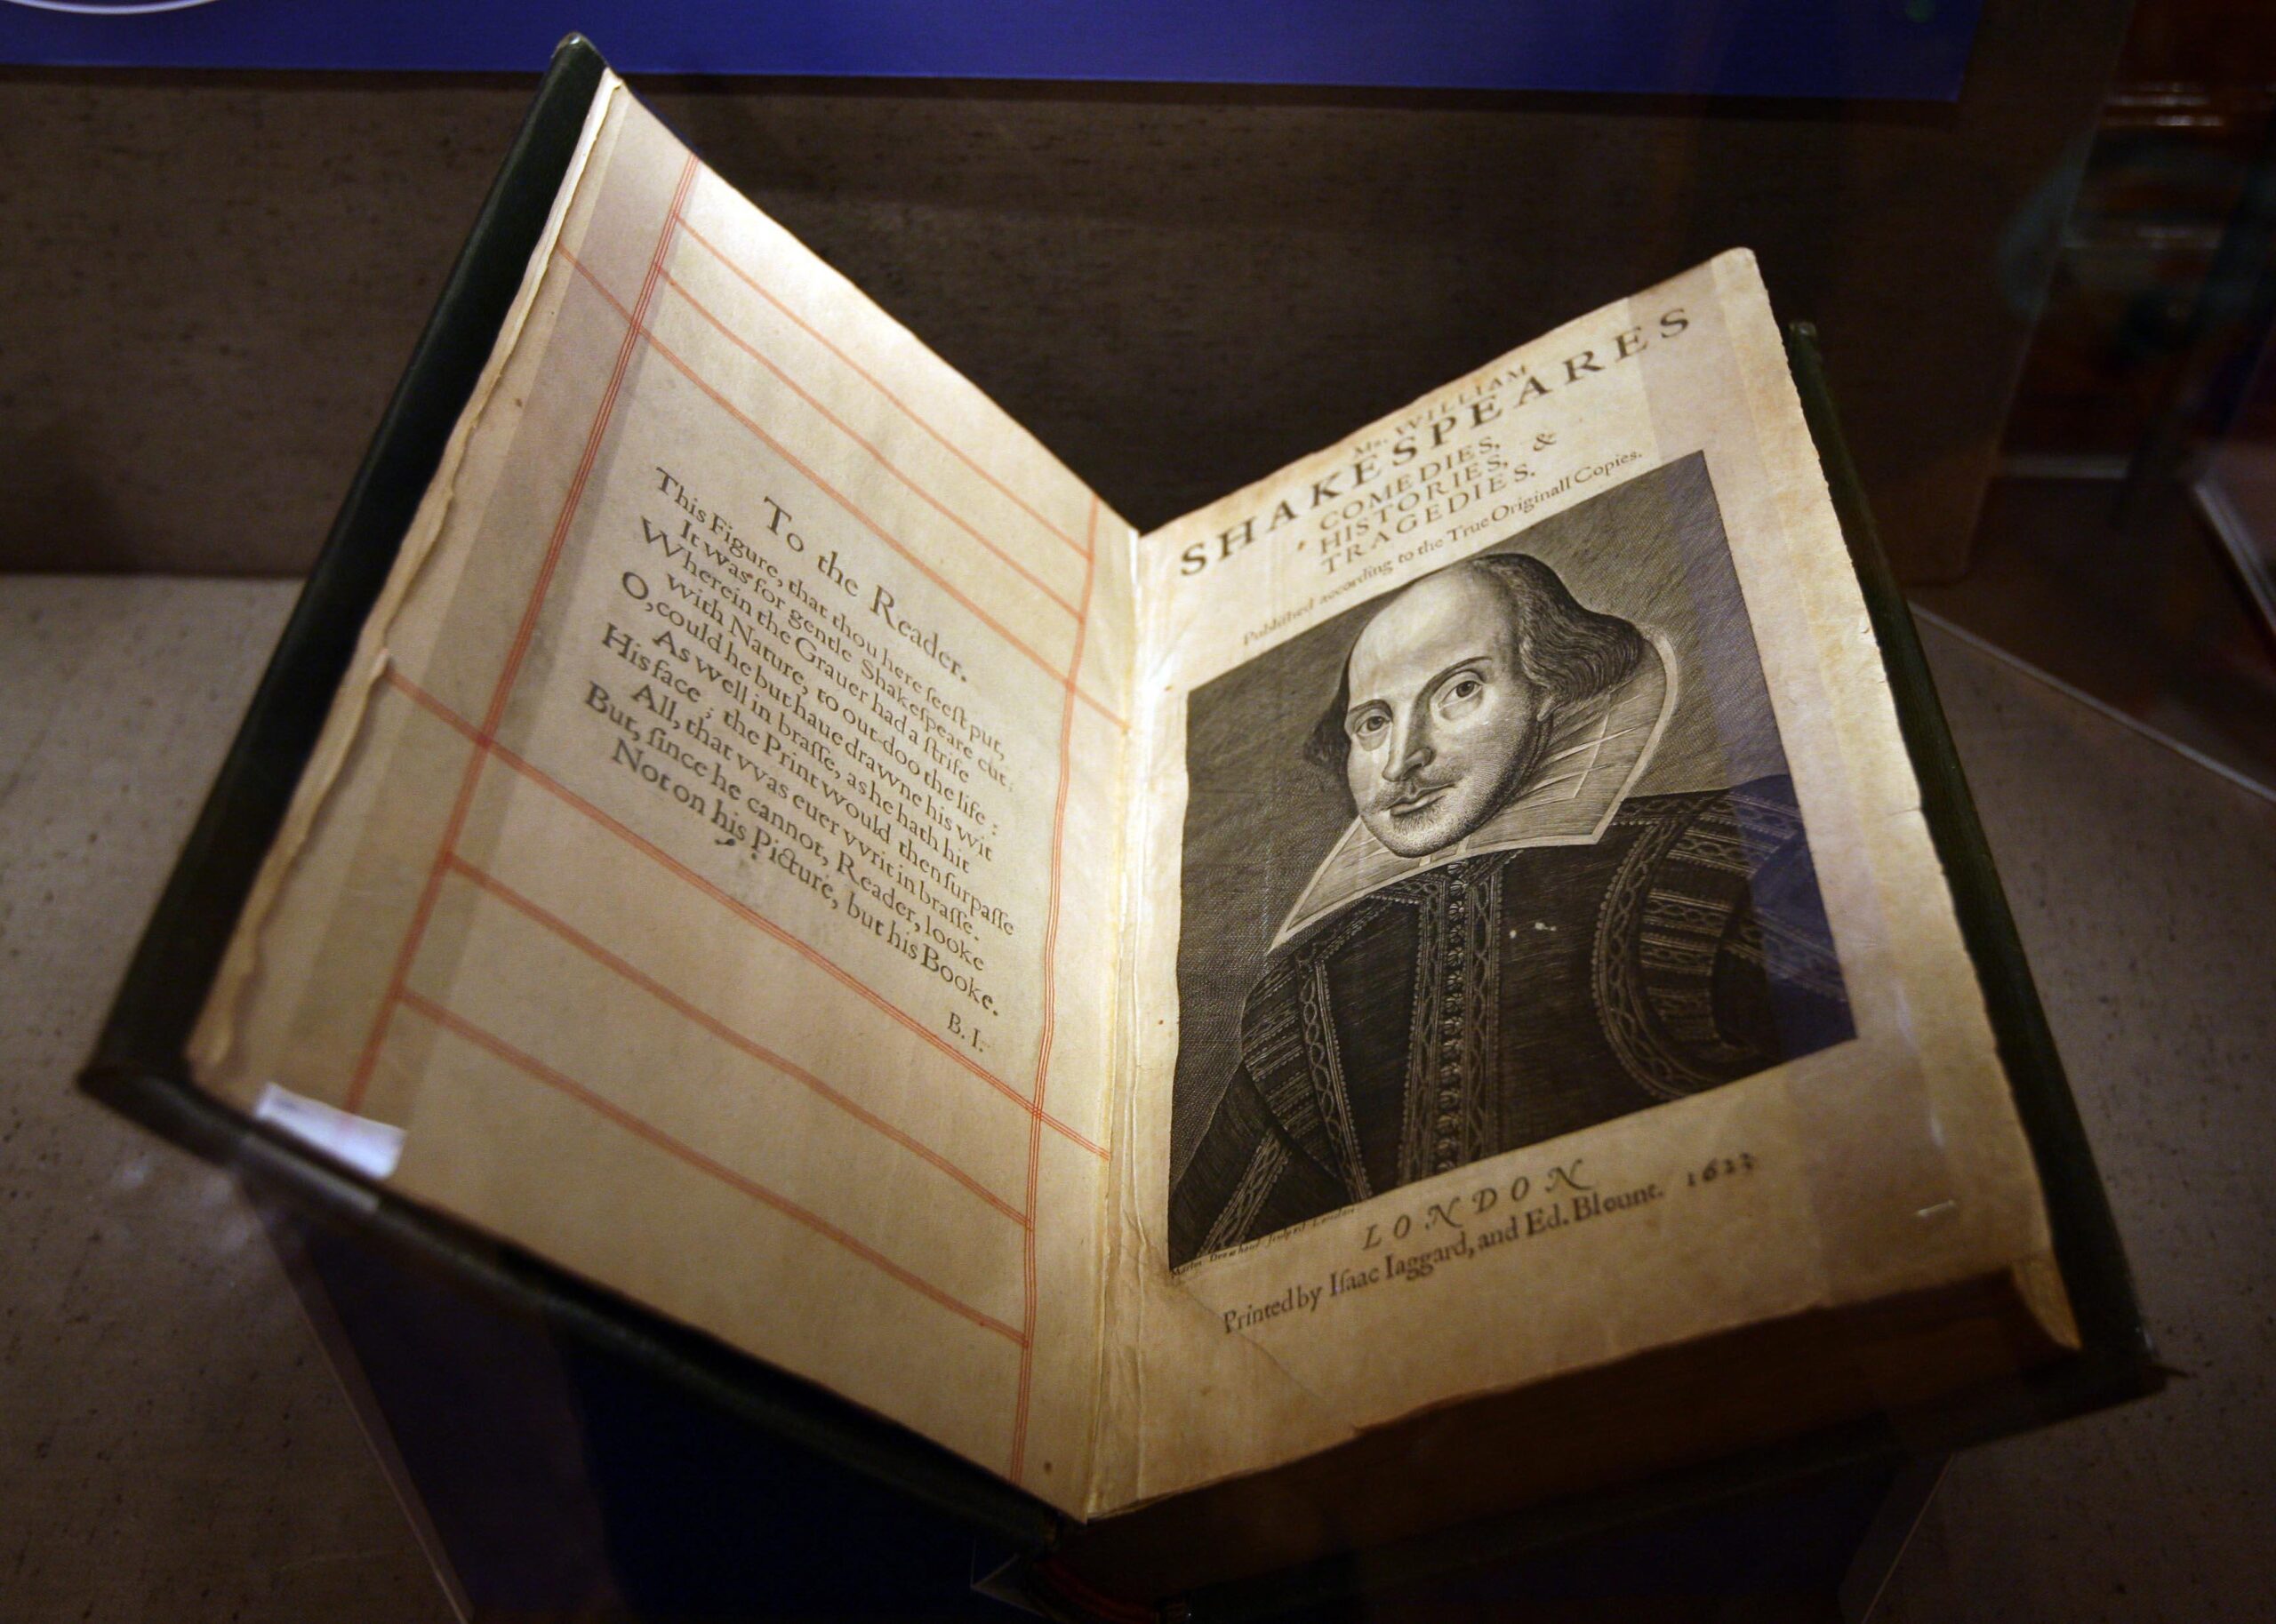 To the Reader.
This Figure, that thou here ſeeſt put,
It was for gentle Shakeſpeare cut;
Wherein the Grauer had a ſtrife
with Nature, to out-doo the life :
O, could he but haue drawne his wit
As well in braſſe, as he hath hit
His face ; the Print would then ſurpaſſe
All, that vvas euer vvrit in braſſe.
But, ſince he cannot, Reader, looke
Not on his Picture, but his Booke.
B. I.
Mr. WILLIAM
SHAKESPEARES
COMEDIES,
HISTORIES, &
TRAGEDIES.
Publiſhed according to the True Originall Copies.
Martin Droeshout ſculpsit London
LONDON
Printed by Iſaac Iaggard, and Ed. Blount. 1623